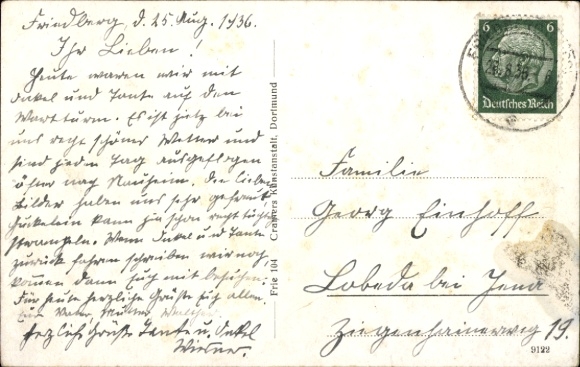 Friedberg, d. 25. Aug. 1936.
Ihr Lieben!
Heute waren wir mit
Onkel und Tante auf dem
Wartturm. Es ist jetzt bei
uns recht schönes Wetter und
sind jeden Tag ausgeflogen
öfter nach Nauheim. Die lieben
Bilder haben uns sehr gefreut
kann ja schon recht tüchtig
strampeln. Wenn Onkel und Tante
zurück fahren schreiben wir noch
kommen dann Euch mit besuchen.
Für heute herzliche Grüße Euch allen.
Mutter
Herzliche Grüße Tante u. Onkel
Wiesner.
Frie 104 Cramers Kunstanstalt, Dortmund
6 6
Deutsches Reich
Familie
Georg Einhoff
Lobeda bei Jena
Ziegenhainerweg 19.
9122